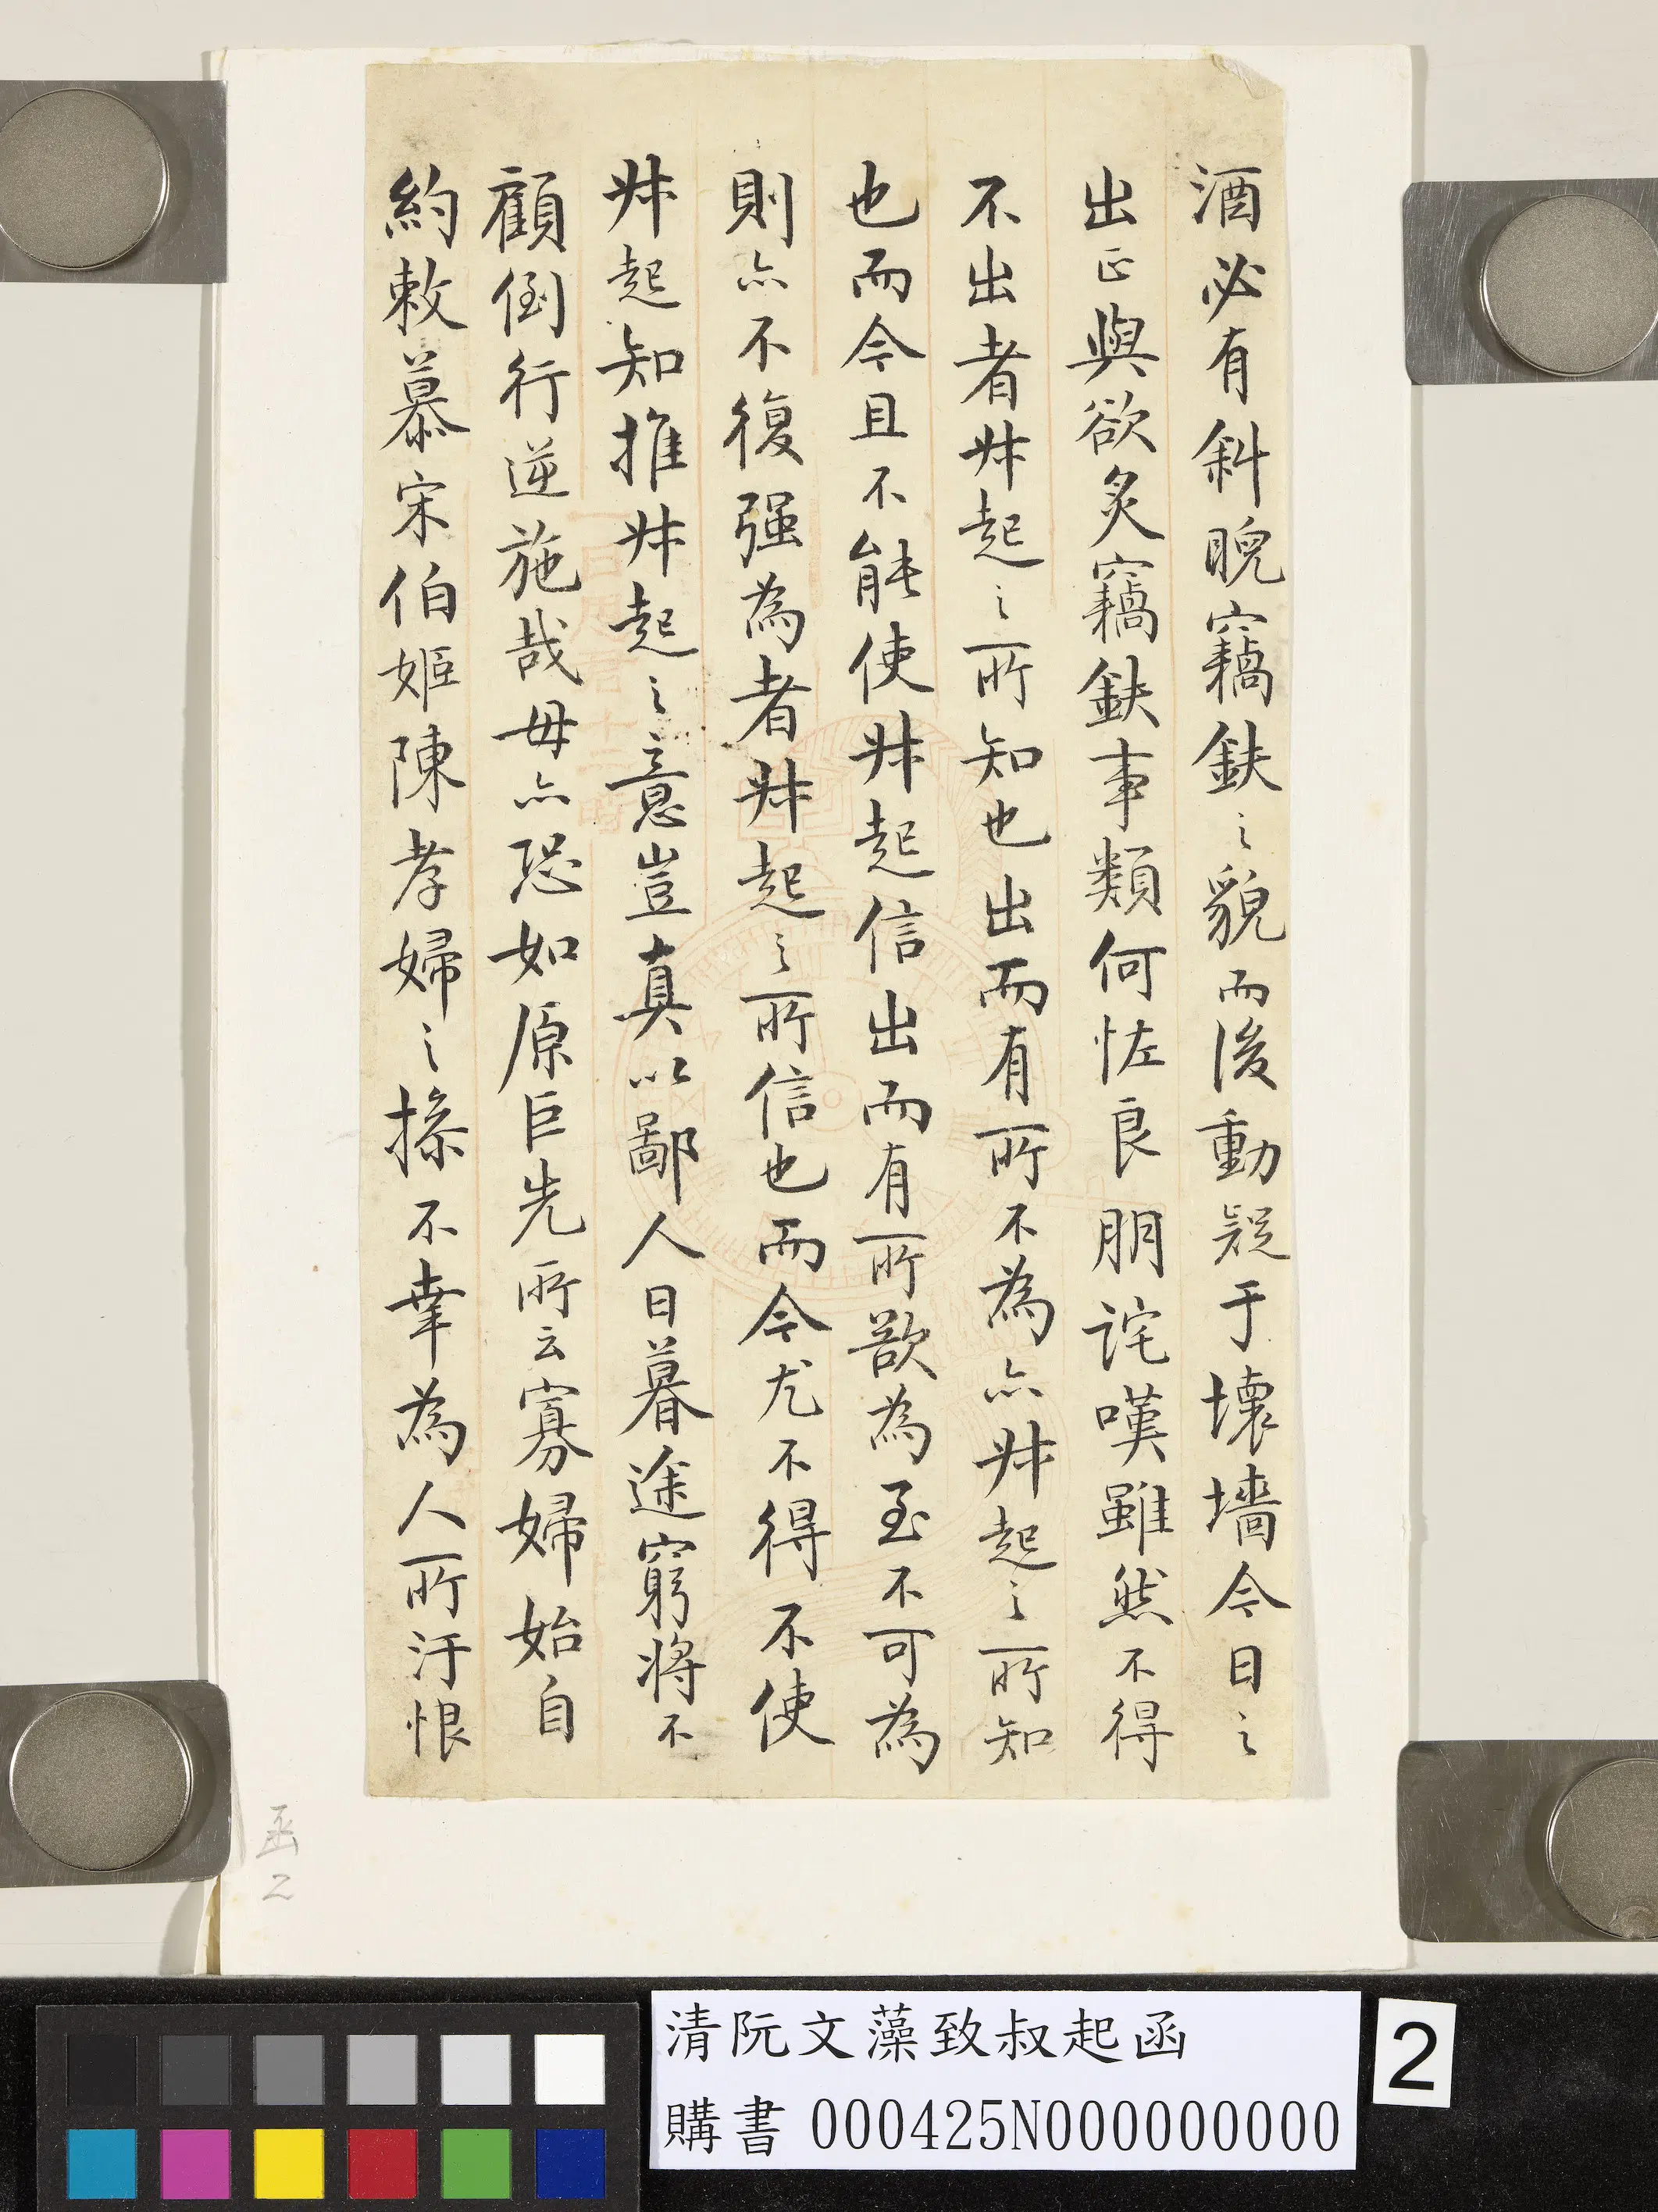 酒必有斜睨竊鈇之貌而後動疑于壞墻今日之
出正與欲炙竊鈇事類何怪良朋詫嘆雖然不得
不出者叔起之所知也出而有所不為亦叔起之所知
也而今且不能使叔起信出而有所欲為至不可為
則亦不復强為者叔起之所信也而今尤不得不使
叔起知推叔起之意豈真以鄙人日暮途窮將不
顧倒行逆施哉毋亦恐如原巨先所云寡婦始自
約敕慕宋伯姬陳孝婦之操不幸為人所汙恨
函2
清阮文藻致叔起函
購書 000425N000000000
2